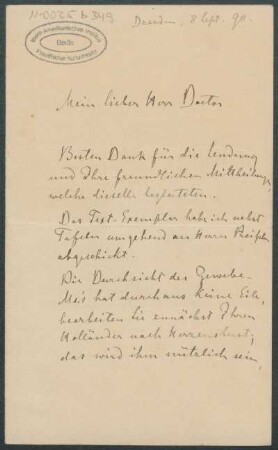 N-0035 b 349
Dresden, 8 Sept. 90.
Ibero-Amerikanisches Institut
Berlin
Preußischer Kulturbesitz
Mein lieber Herr Doctor
Besten Dank für die Sendung
und Ihre freundlichen Mittheilungen,
welche dieselbe begleiteten.
Das Text-Exemplar hab ich nebst
Tafeln umgehend an Herrn
abgeschickt.
Die Durchsicht des Gewebe-
Ms's hat durchaus keine Eile,
bearbeiten Sie zunächst Ihren
Holländer nach Herzenslust;
das wird ihm nützlich sein,